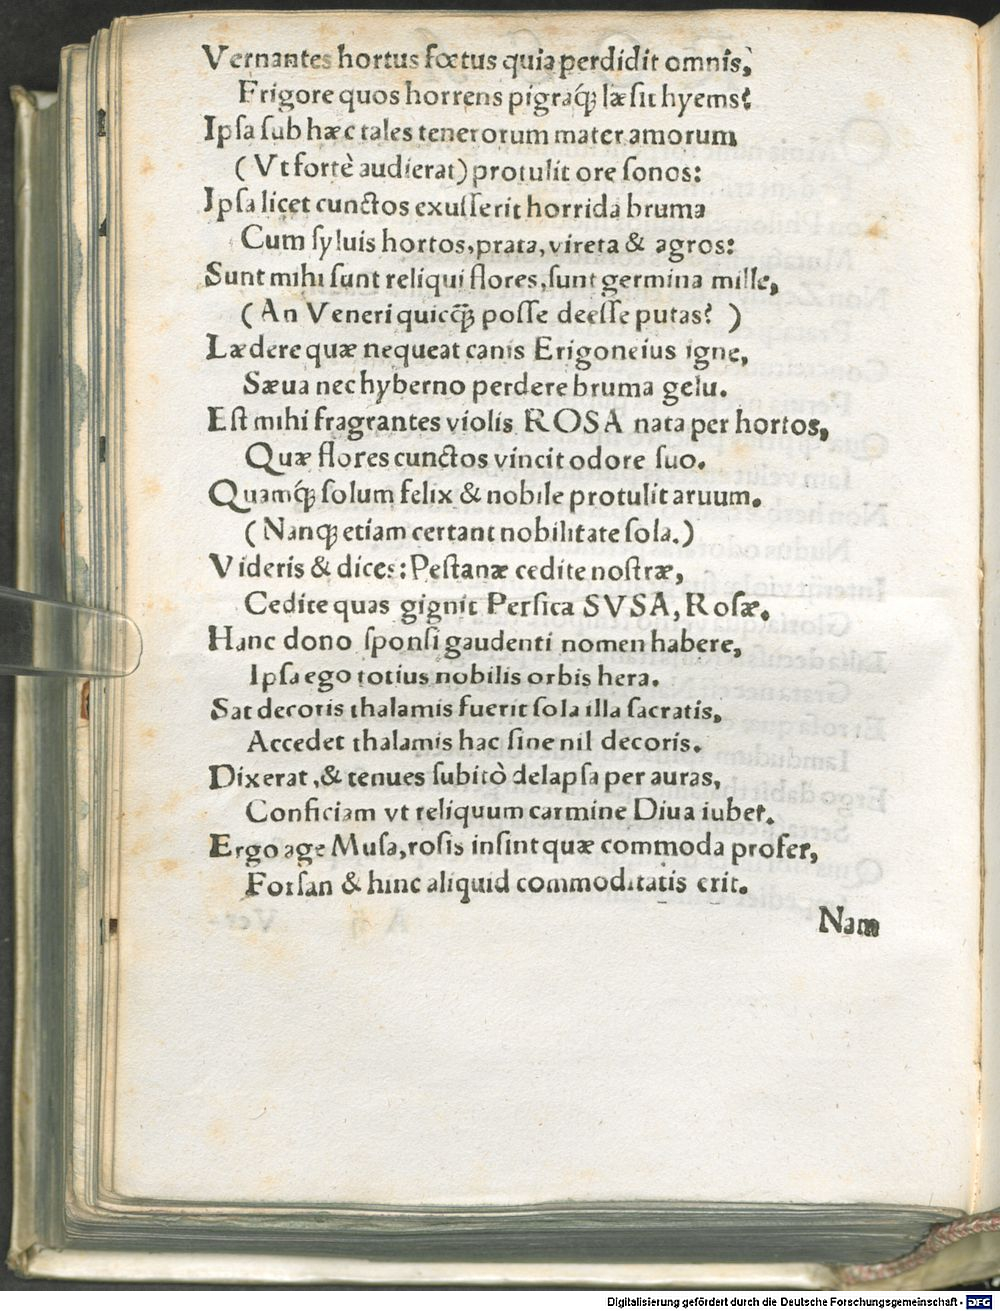 Vernantes hortus fœtus quia perdidit omnis,
Frigore quos horrens pigraq́; læſit hyems?
Ipſa ſub hæc tales tenerorum mater amorum
(Vt fortè audierat) protulit ore ſonos:
Ipſa licet cunctos exuſſerit horrida bruma
Cum ſyluis hortos, prata, vireta & agros:
Sunt mihi ſunt reliqui flores, ſunt germina mille,
(An Veneri quicq̃; poſſe deeſſe putas? )
Lædere quæ nequeat canis Erigoneius igne,
Sæua nec hyberno perdere bruma gelu.
Eſt mihi fragrantes violis ROSA nata per hortos,
Quæ flores cunctos vincit odore ſuo.
Quamq́; ſolum felix & nobile protulit aruum.
(Nanq; etiam certant nobilitate ſola.)
Videris & dices: Peſtanæ cedite noſtræ,
Cedite quas gignit Perſica SVSA, Roſæ.
Hanc dono ſponſi gaudenti nomen habere,
Ipſa ego totius nobilis orbis hera.
Sat decoris thalamis fuerit ſola illa ſacratis,
Accedet thalamis hac ſine nil decoris.
Dixerat, & tenues ſubitò delapſa per auras,
Conficiam vt reliquum carmine Diua iubet.
Ergo age Muſa, roſis inſint quæ commoda profer,
Forſan & hinc aliquid commoditatis erit.
Nam
Digitalisierung gefördert durch die Deutsche Forschungsgemeinschaft - DFG